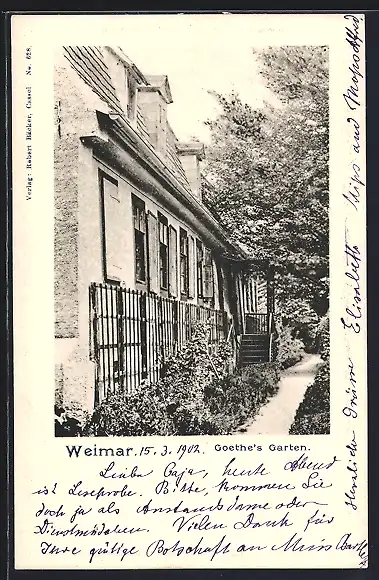 Verlag: Robert Bäcker, Cassel No. 628.
Weimar. 15.3.1902. Goethe's Garten.
Liebe Caja, heute Abend
ist Leseprobe. Bitte, kommen Sie
doch ja als Anstandsdame oder
Dienstmädchen. Vielen Dank für
Ihre gütige Botschaft an Miss
Herzliche Grüsse Elisabeth